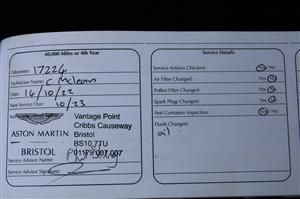 40,000 Miles or 4th Year
Odometer: 17224
Technician Name: C. Mclean
Date: 14/10/22
Next Service Due: 10/23
ASTON MARTIN
BRISTOL
Vantage Point
Cribbs Causeway
Bristol
BS10 7TU
01179 007 007
Service Advisor Name:
Service Advisor Signature:
Service Details
Service Actions Checked: Yes/No
Air Filter Changed: Yes/No
Pollen Filter Changed: Yes/No
Spark Plugs Changed: Yes/No
Anti Corrosion Inspection: Yes/No
Fluids Changed:
oil